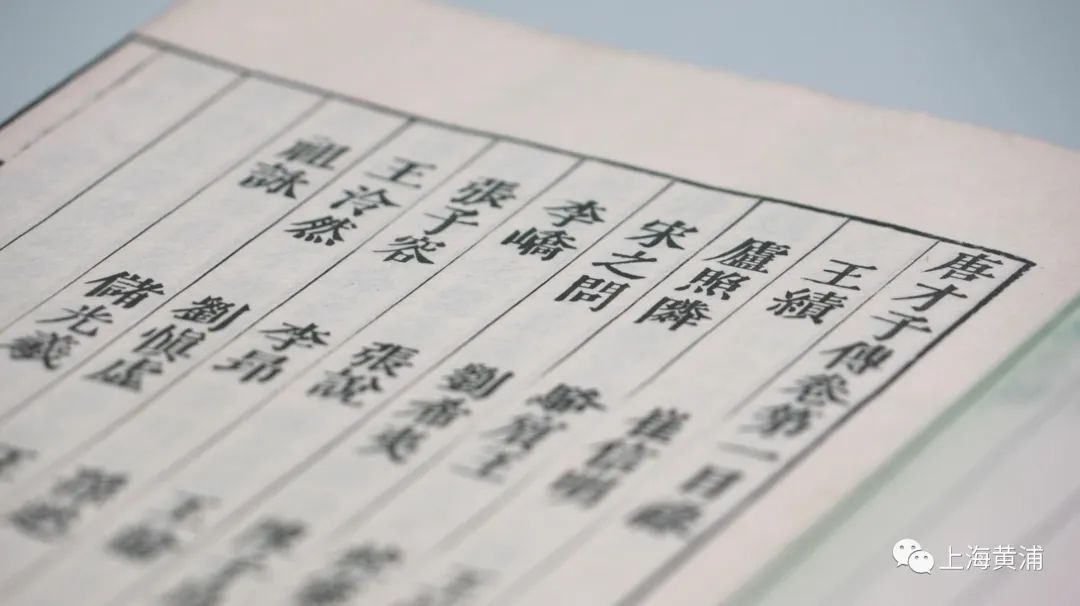 唐才子傳卷第一目錄
王績 崔信明 王
盧照隣 駱賓王
宋之問 劉希夷
李嶠 張說 王
張子容 李昻
王泠然 劉愼虛 王
祖詠 儲光羲
上海黄浦